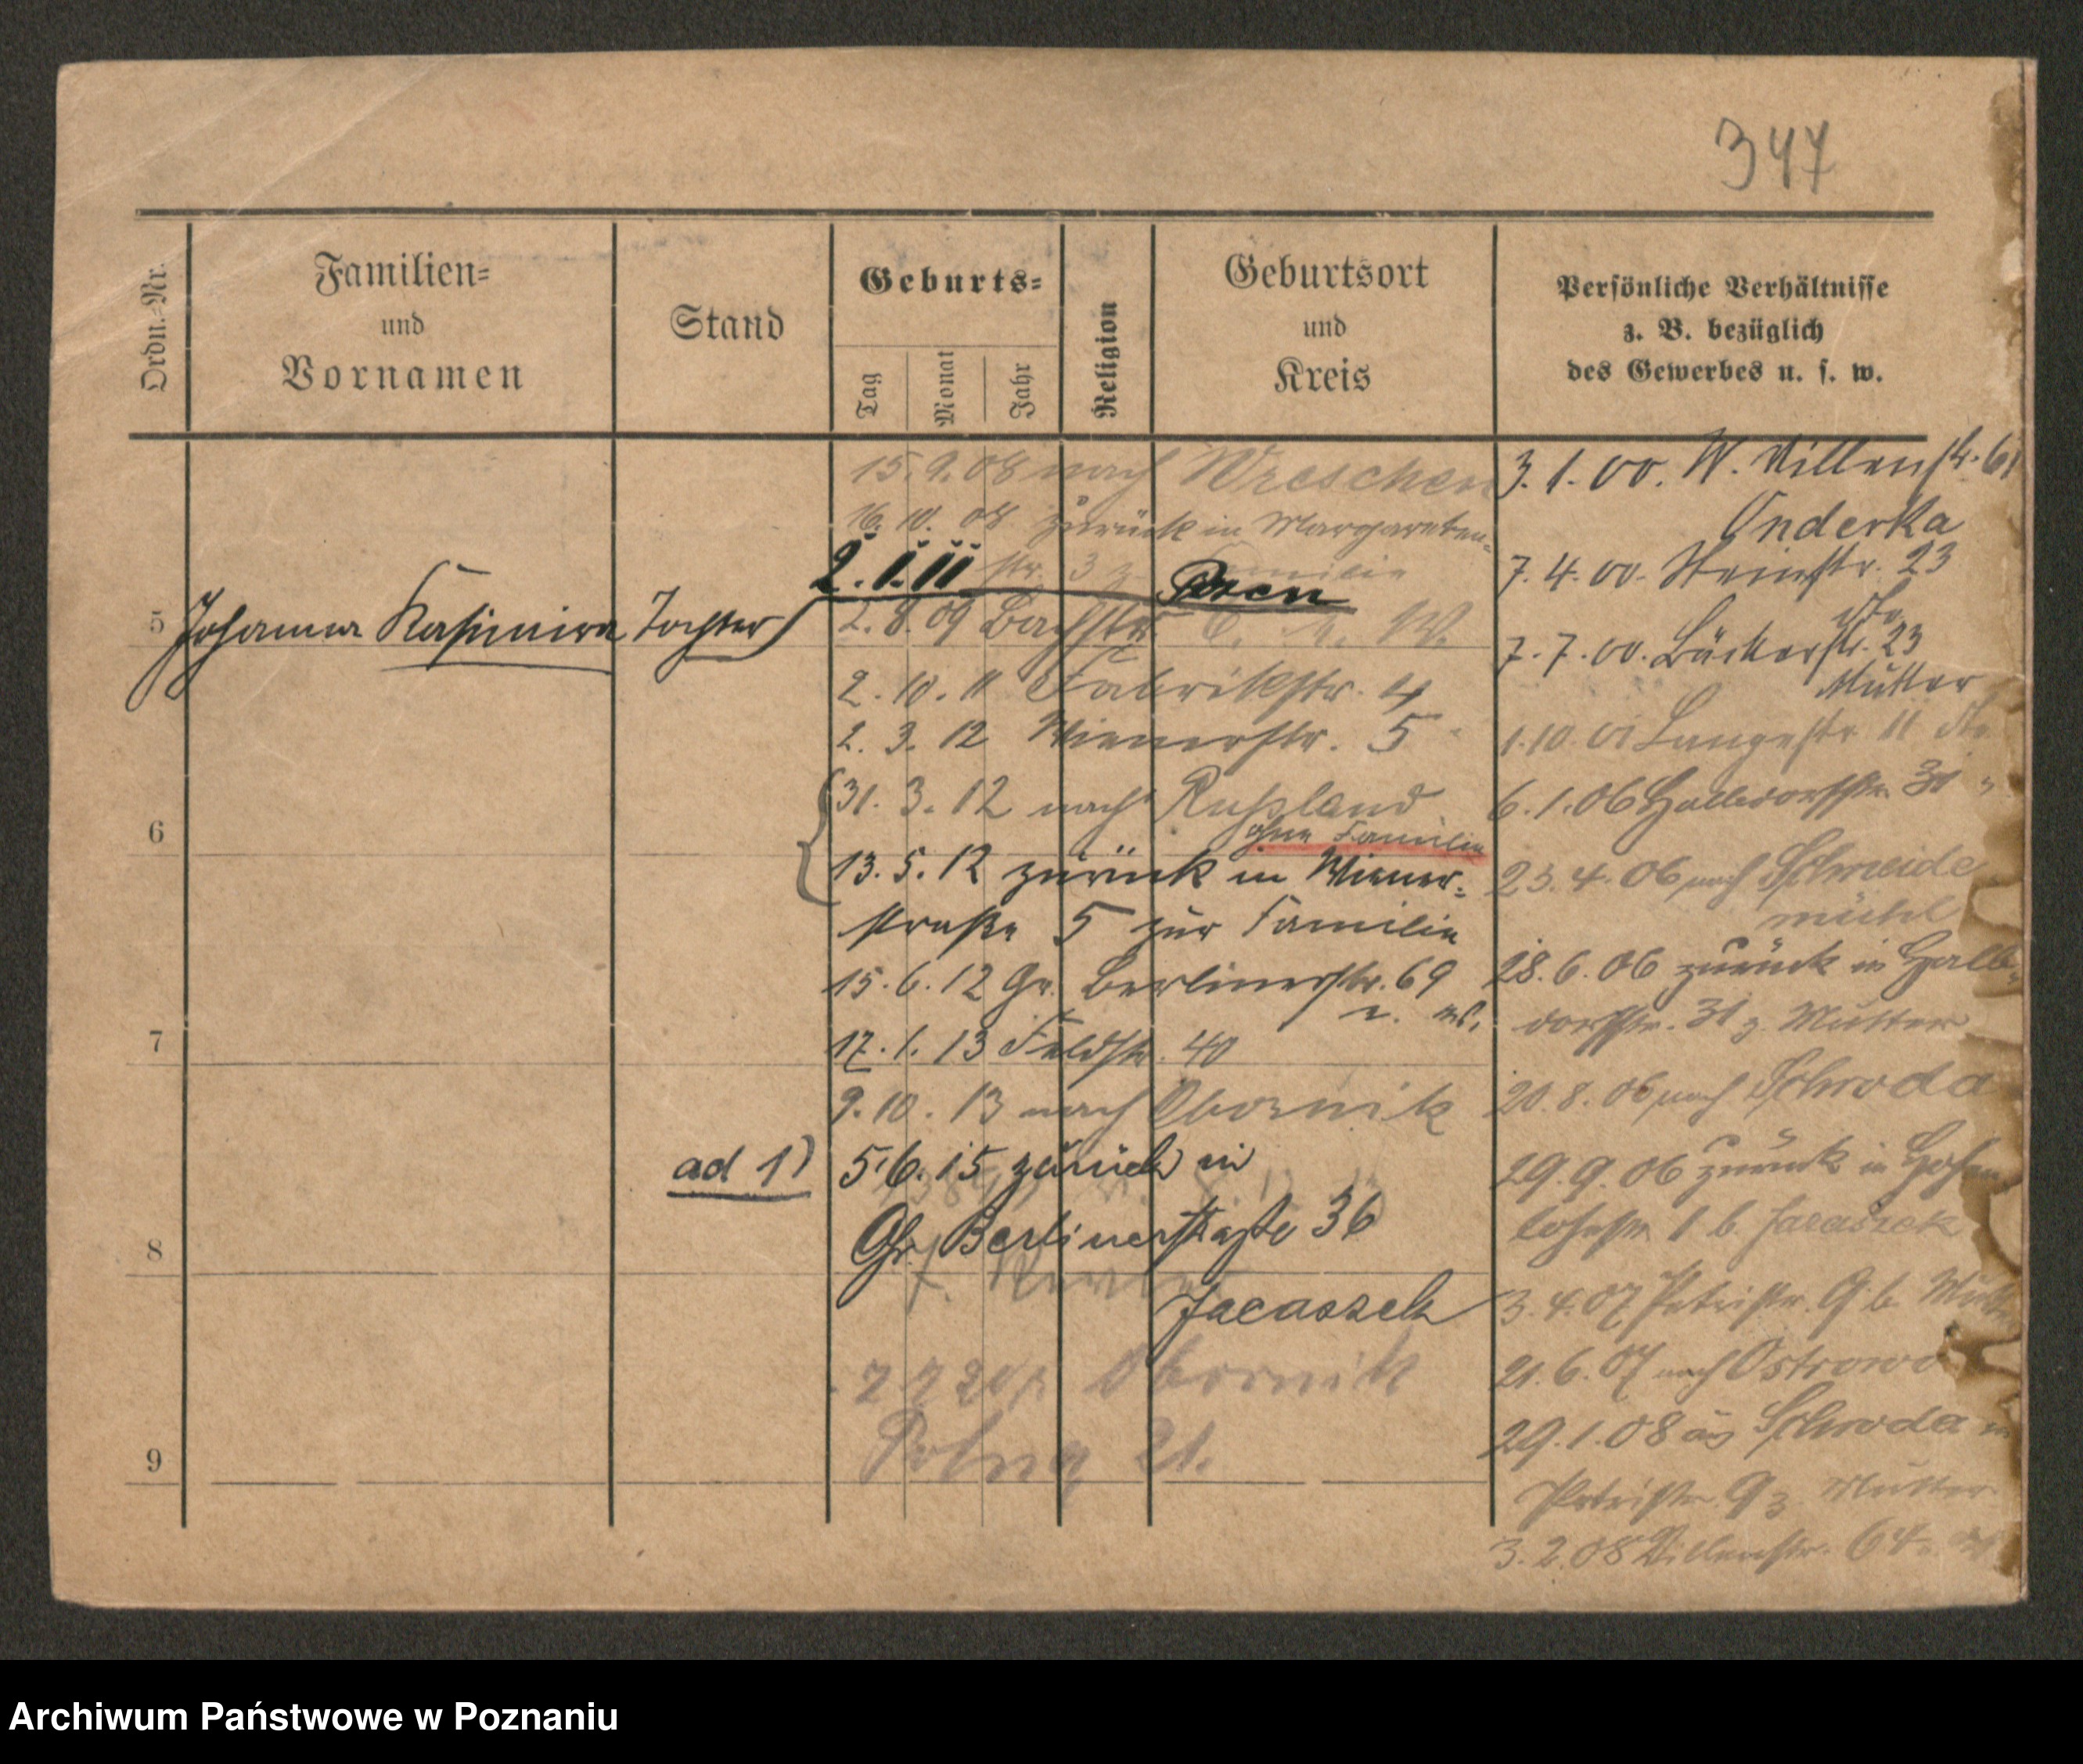 347
Ordn.-Nr.
Familien-
und
Vornamen
Stand
Geburts-
Tag
Monat
Jahr
Religion
Geburtsort
und
Kreis
Persönliche Verhältnisse
z. B. bezüglich
des Gewerbes u. s. w.
5 Johanna Kasimira Tochter
2. I. 11 Posen
6
7
8
9
15. 9. 08 nach Wreschen
16. 10. 08 zurück in Margareten-
str. 3 z. Familie
2. 8. 09 Bachstr.
2. 10. 11 Fabrikstr. 4
2. 3. 12 Wienerstr. 5
31. 3. 12 nach Rußland
ohne Familie
13. 5. 12 zurück in Wiener-
straße 5 zur Familie
15. 6. 12 Gr. Berlinerstr. 69
17. 1. 13 Feldstr. 40
9. 10. 13 nach Obornik
ad 1) 5. 6. 15 zurück in
Gr. Berlinerstraße 36
Jacaszek
Obornik
Polna 21.
3. 1. 00. W. Villenstr. 61
Onderka
7. 4. 00. Steinstr. 23
dto
7. 7. 00. Bäckerstr. 23
Mutter
1. 10. 01 Langestr. 11 dto
6. 1. 06 Halbdorfstr. 31 "
23. 4. 06 nach Schneide
mühl
28. 6. 06 zurück in Halb-
dorfstr. 31 z. Mutter
20. 8. 06 nach Schroda
29. 9. 06 zurück in Hohen
lohestr. 1 b. Jacaszek
3. 4. 07 Petristr. 9 b. Mutter
21. 6. 07 nach Ostrowo
29. 1. 08 aus Schroda in
Petristr. 9 z. Mutter
3. 2. 08 Villenstr. 64.
Archiwum Państwowe w Poznaniu